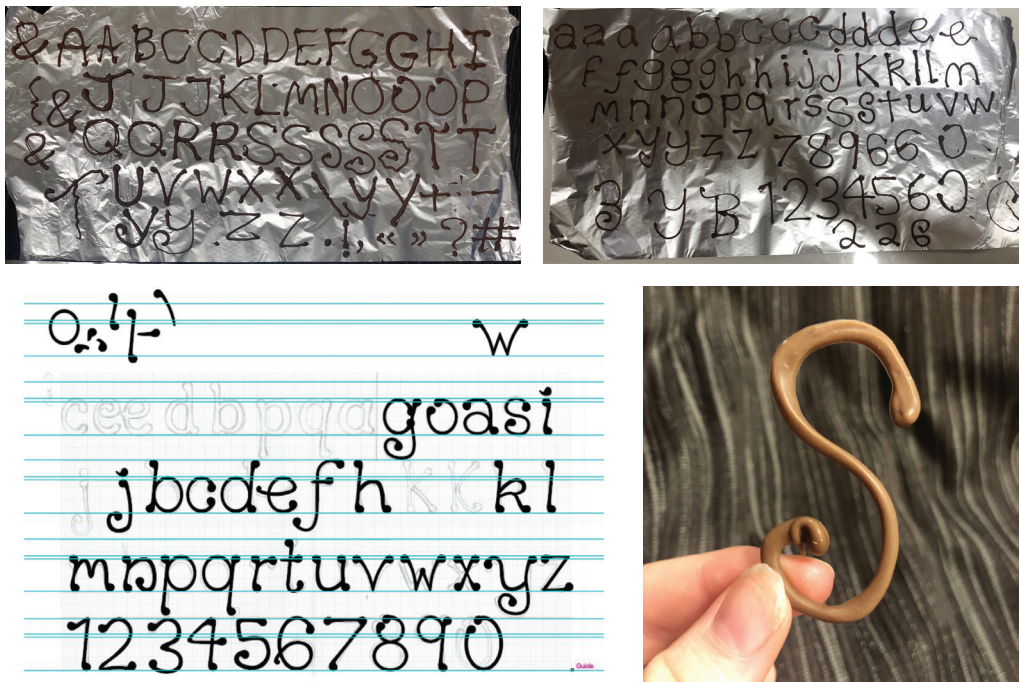 & A A B C C D D E F G G H I
{ & J J J K L M N O O O P
& Q Q R R S S S S S T T
U V W X X \ y y + -
y y . z z . ! , « » ? #
a a a a b b c c c d d d e e
f f g g g h h i j j k k l l m
m n n o p q r s s s t u v w
x y y z z 7 8 9 6 6 0
3 y B 1 2 3 4 5 6 0
2 2 6
o w
c e e d b p q a g o a s i
j j b c d e f h k k k l
m n p q r t u v w x y z
1 2 3 4 5 6 7 8 9 0
Guide
S